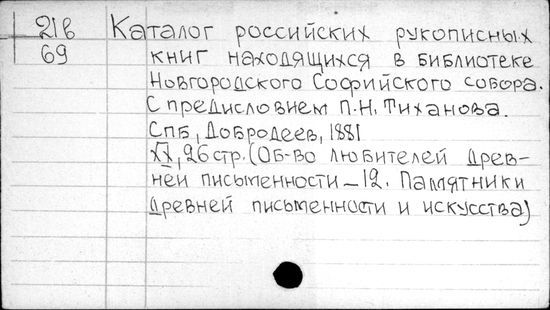 21в Каталог российских рукописных
69 книг находящихся в библиотеке
Новгородского Софийского собора.
С предисловием П.Н. Тиханова.
СПБ, Добродеев, 1881
XX, 26 стр. (Об-во любителей древ-
ней письменности – 12. Памятники
древней письменности и искусства)